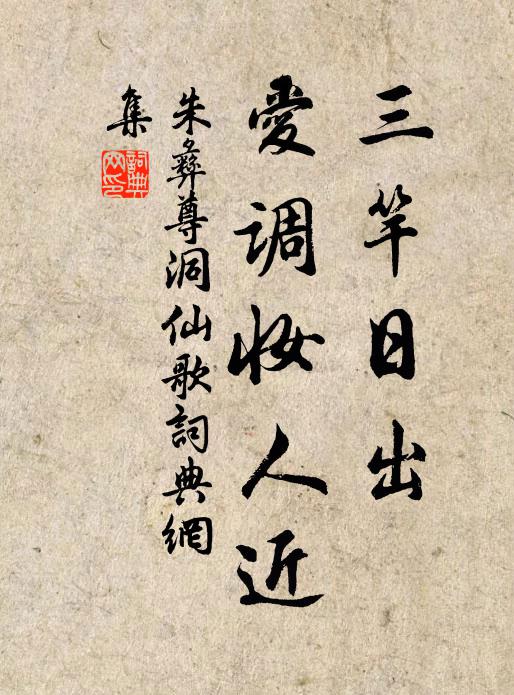 三竿日出
愛调妆人近
朱彝尊洞仙歌詞典網
集
詞典
网印